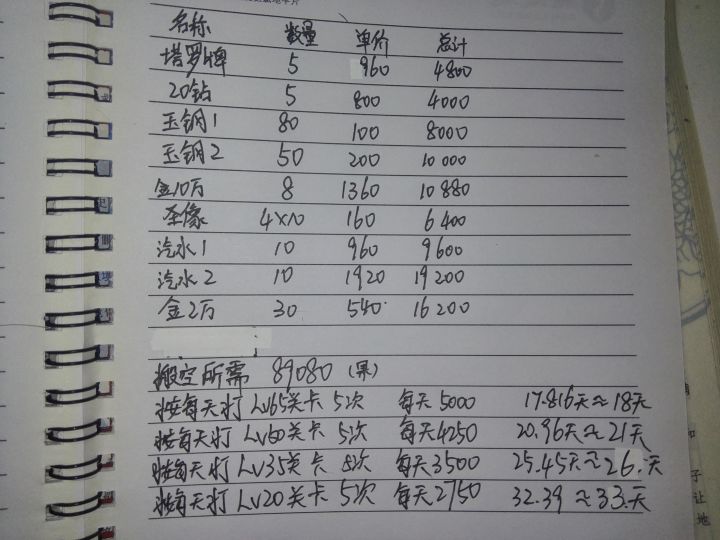 名称 数量 单价 总计
塔罗牌 5 960 4800
20钻 5 800 4000
玉钢1 80 100 8000
玉钢2 50 200 10000
金10万 8 1360 10880
圣像 4×10 160 6400
汽水1 10 960 9600
汽水2 10 1920 19200
金2万 30 540 16200
搬空所需 89080 (果)
按每天打 Lv65关卡 5次 每天5000 17.816天≈18天
按每天打 Lv60关卡 5次 每天4250 20.96天≈21天
按每天打 Lv35关卡 8次 每天3500 25.45天≈26.天
按每天打 Lv20关卡 5次 每天2750 32.39≈33.天
和
子
让
地